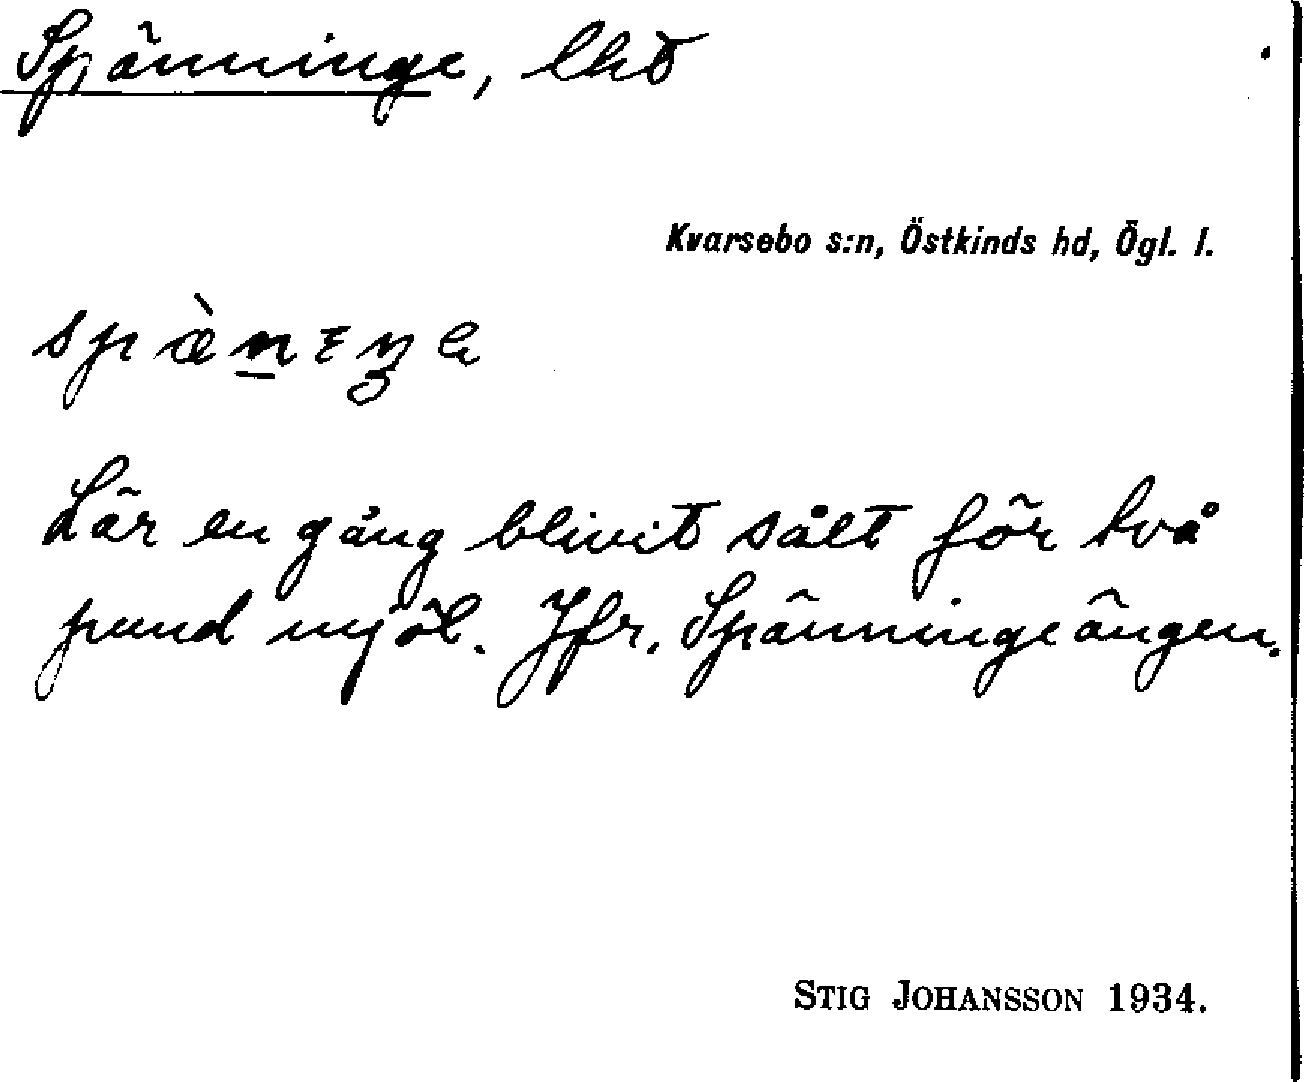 Spänninge, lht
Kvarsebo s:n, Östkinds hd, Ögl. l.
Lär en gång blivit sålt för två
pund mjöl. Jfr. Spänningeängen.
STIG JOHANSSON 1934.